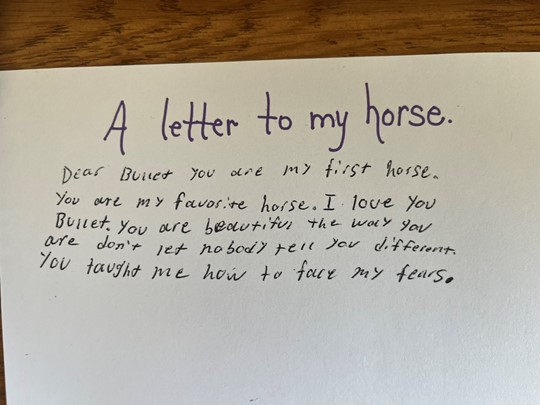 A letter to my horse.
Dear Bullet you are my first horse.
You are my favorite horse. I love you
Bullet. You are beautiful the way you
are don't let nobody tell you different.
You taught me how to face my fears.